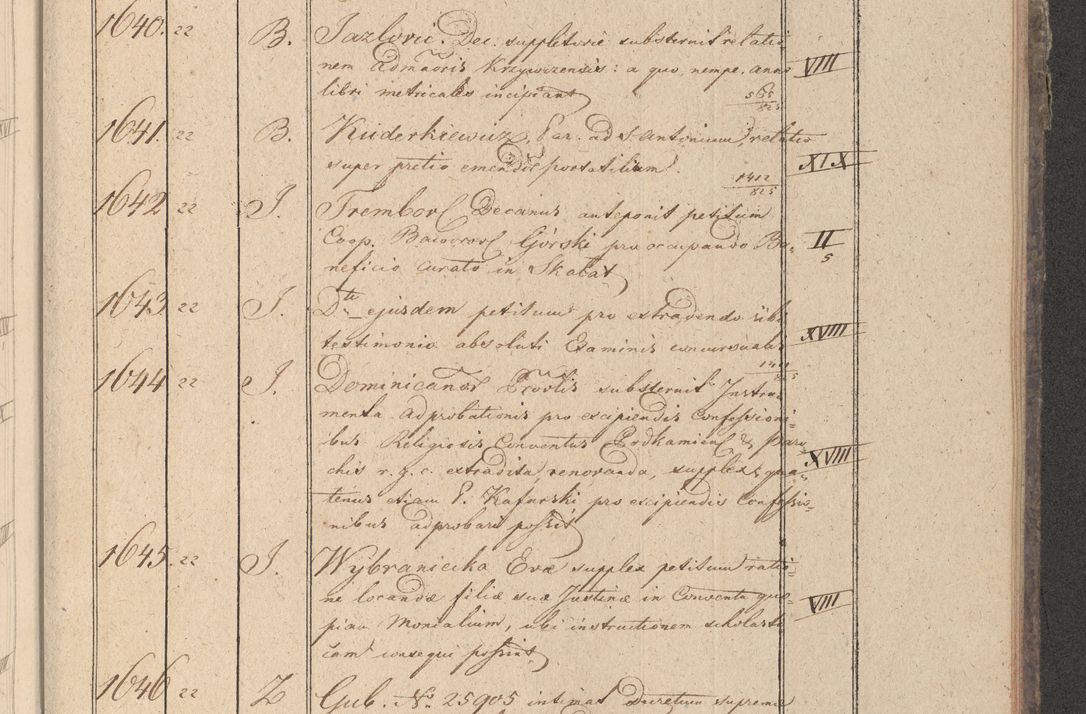 1640. 22 B. Jazlovic. Dec. suppletorie substernit relatio
nem admaoris Krzywizensis: a quo, nempe, anno VIII
libri metricales incipiant 565/825
1641. 22 B. Kuderkiewicz, Par. ad S. Antonium, relatio
super pretio emendi portatilium. 1412/825 XIX
1642 22 J. Trembovl Decanus anteponit petitum
Coop. Baworov Górski pro occupando Be- II
neficio curato in Skalat 5
1643 22 J. Dtt ejusdem petitum pro extradendo sibi
testimonio absoluti Examinis concursualis XVIII
1644 22 J. Dominicanor Provlis substernit Instru-
menta adprobationis pro excipiendis Confessioni-
bus Religiosis Conventus Podkamień & Paro
chis r. g. c. extradita, renovanda, supplex qua- XVIII
tenus etiam P. Kafarski pro excipiendis Confessio-
nibus adprobari possit
1645. 22 J. Wybraniecka Evæ supplex petitum ratio-
ne locandæ filiæ suæ Justinæ in Conventu quo-
piam Monialium, ubi instructionem scholasti VIII
cam consequi possint
1646 22 Z Gub. No. 25905 intimat Decretum supremæ